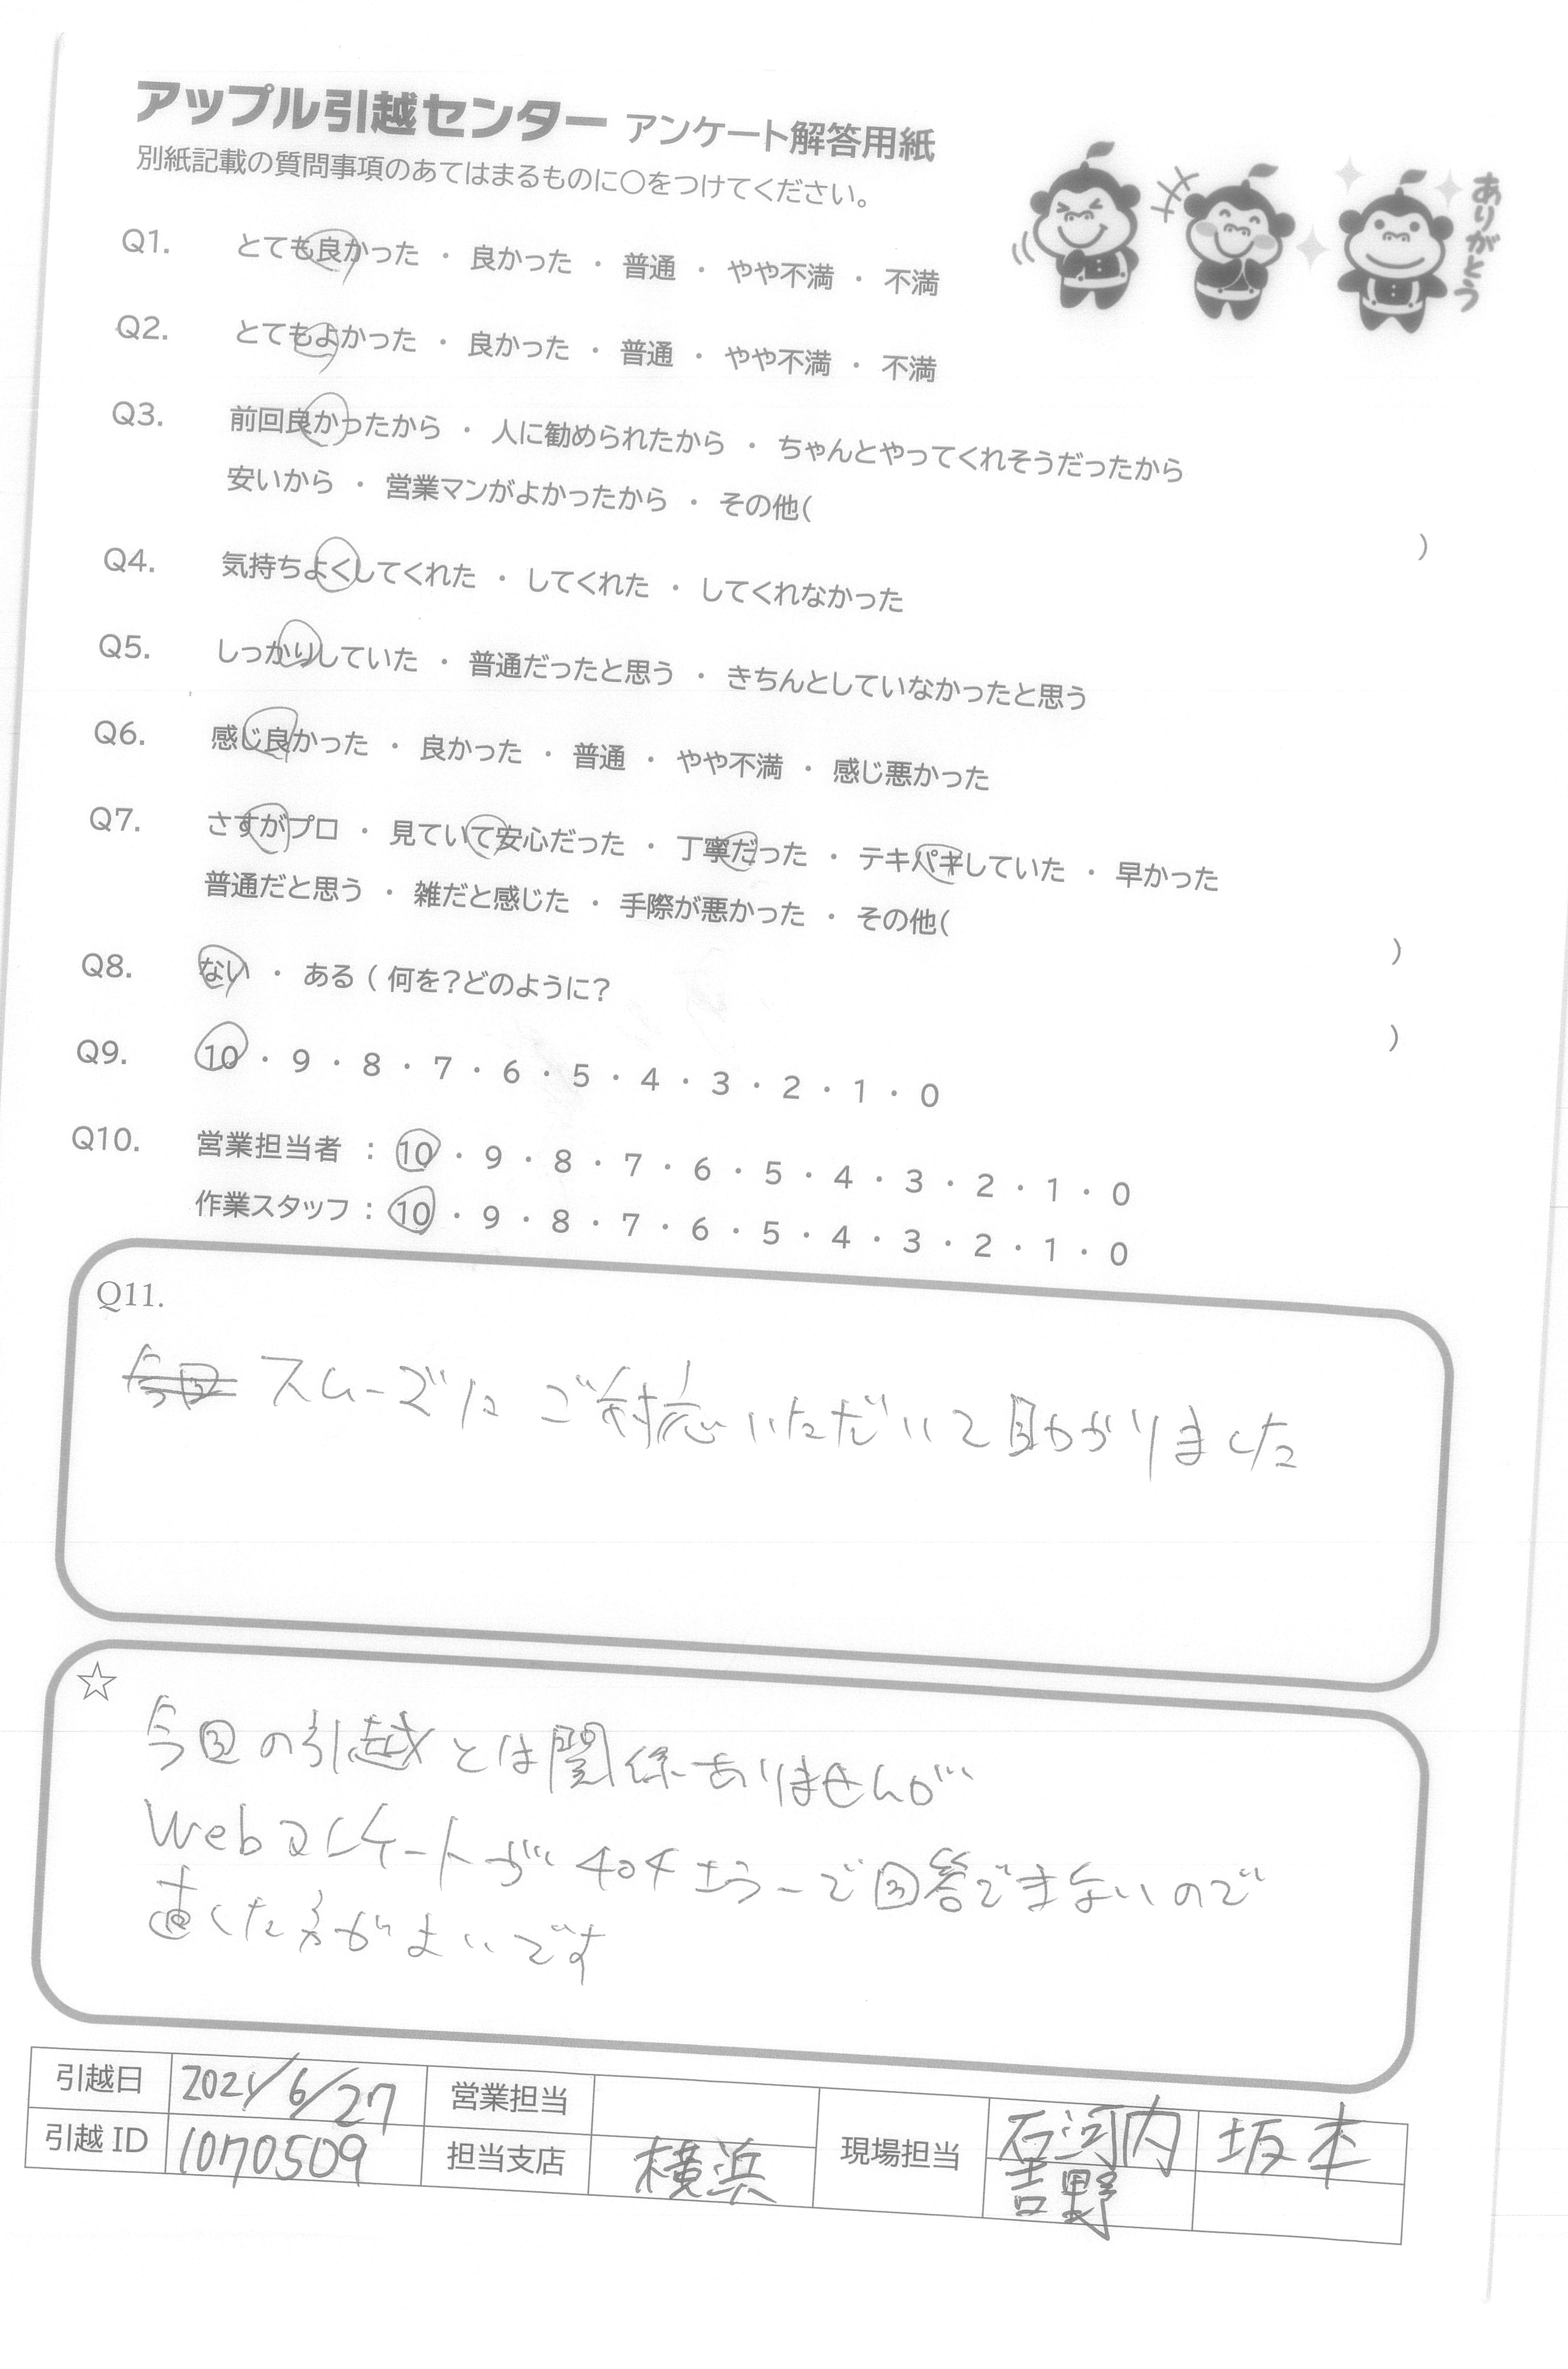 アップル引越センター アンケート解答用紙
別紙記載の質問事項のあてはまるものに○をつけてください。
ありがとう
Q1. とても良かった ・ 良かった ・ 普通 ・ やや不満 ・ 不満
Q2. とてもよかった ・ 良かった ・ 普通 ・ やや不満 ・ 不満
Q3. 前回良かったから ・ 人に勧められたから ・ ちゃんとやってくれそうだったから
安いから ・ 営業マンがよかったから ・ その他( )
Q4. 気持ちよくしてくれた ・ してくれた ・ してくれなかった
Q5. しっかりしていた ・ 普通だったと思う ・ きちんとしていなかったと思う
Q6. 感じ良かった ・ 良かった ・ 普通 ・ やや不満 ・ 感じ悪かった
Q7. さすがプロ ・ 見ていて安心だった ・ 丁寧だった ・ テキパキしていた ・ 早かった
普通だと思う ・ 雑だと感じた ・ 手際が悪かった ・ その他( )
Q8. ない ・ ある ( 何を?どのように? )
Q9. 10 ・ 9 ・ 8 ・ 7 ・ 6 ・ 5 ・ 4 ・ 3 ・ 2 ・ 1 ・ 0
Q10. 営業担当者 : 10 ・ 9 ・ 8 ・ 7 ・ 6 ・ 5 ・ 4 ・ 3 ・ 2 ・ 1 ・ 0
作業スタッフ : 10 ・ 9 ・ 8 ・ 7 ・ 6 ・ 5 ・ 4 ・ 3 ・ 2 ・ 1 ・ 0
Q11.
今回 スムーズに ご対応いただいて助かりました
☆
今回の引越とは関係ありませんが
Webアンケートが404エラーで回答できないので
直した方がよいです
引越日 営業担当
引越ID 1070509 担当支店 横浜 現場担当 石河内 坂本
吉野